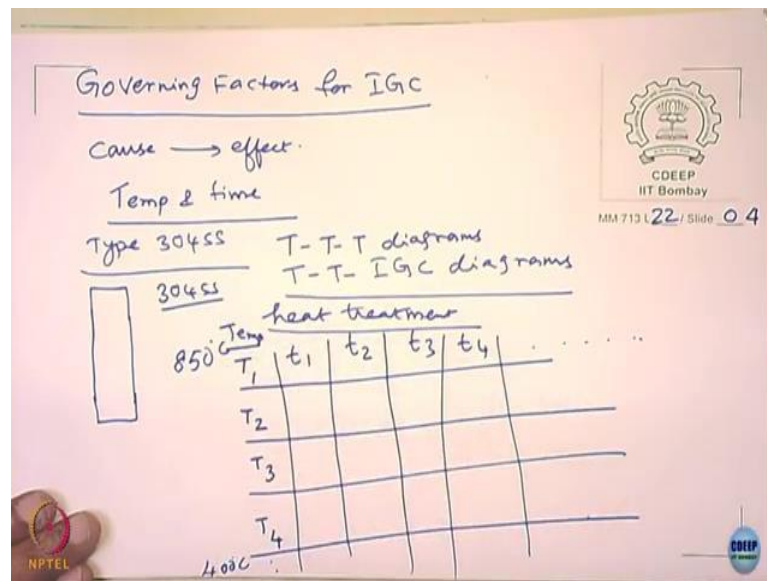 Governing Factors for IGC
Cause → effect.
Temp & time
Type 304SS T-T-T diagrams
T-T-IGC diagrams
304SS
heat treatment
Temp
850°C T1 t1 t2 t3 t4 . . . . . . .
T2
T3
T4
400C :
CDEEP
IIT Bombay
MM 713 L 22 / Slide 04
NPTEL
CDEEP
IIT BOMBAY